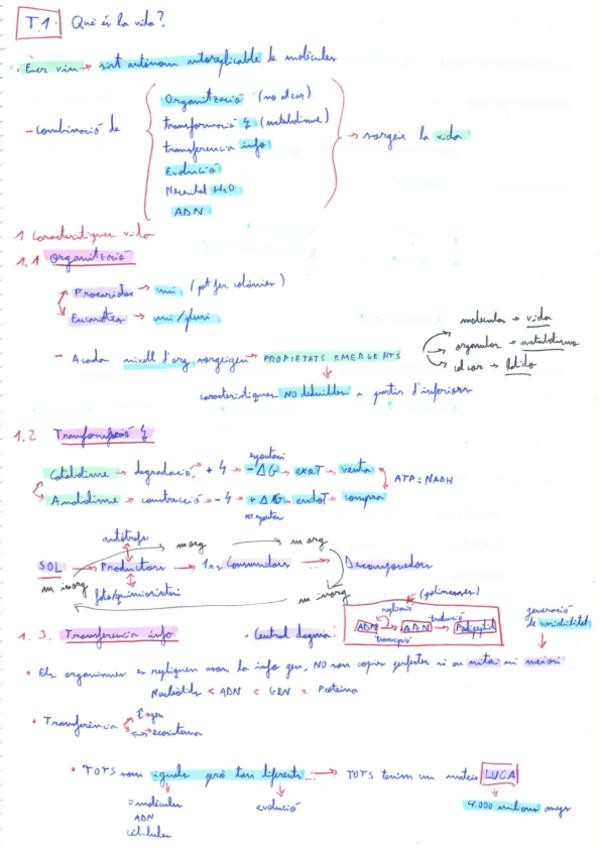 T.1. Què és la vida?
• Ésser viu → sist autònom autoreplicable de molècules
Organització (no atzar)
transformació ϟ (metabolisme)
- Combinació de transferencia info → sorgeix la vida
Evolució
Necessitat H2O
ADN
1 Característiques vida
1.1 Organització
Procariotes → uni (pot fer colònies)
Eucariotes → uni/pluri
molecular → vida
- A cada nivell d'org. sorgeixen → PROPIETATS EMERGENTS
organular → metabolisme
cel·lular → latido
característiques NO deduïbles a partir d'inferiors
1.2 Transformació ϟ
espontani
Catabolisme → degradació → + ϟ → -ΔG → exoT → venta
ATP = NADH
Anabolisme → construcció → - ϟ → + ΔG → endoT → compra
no espontani
autòtrofs
m org → m org
SOL → Productors → 1rs Consumidors → ... → Descomponedors
m inorg
foto/quimiosíntesi
m inorg
(polimerases)
1.3. Transferencia info
• Central dogma:
replicació
traducció
ADN → ARN → Polipèptid
transcripció
generació de variabilitat
• Els organismes es repliquen usant la info gen, NO son copies perfectes ni en mitosi ni meiosi
Nucleòtids < ADN < GEN = Proteina
• Transferència
ecosistema
• TOTS som iguals però tan diferents... → TOTS tenim un mateix LUCA
= molècules
ADN
cèl·lules
evolució
4.000 milions anys